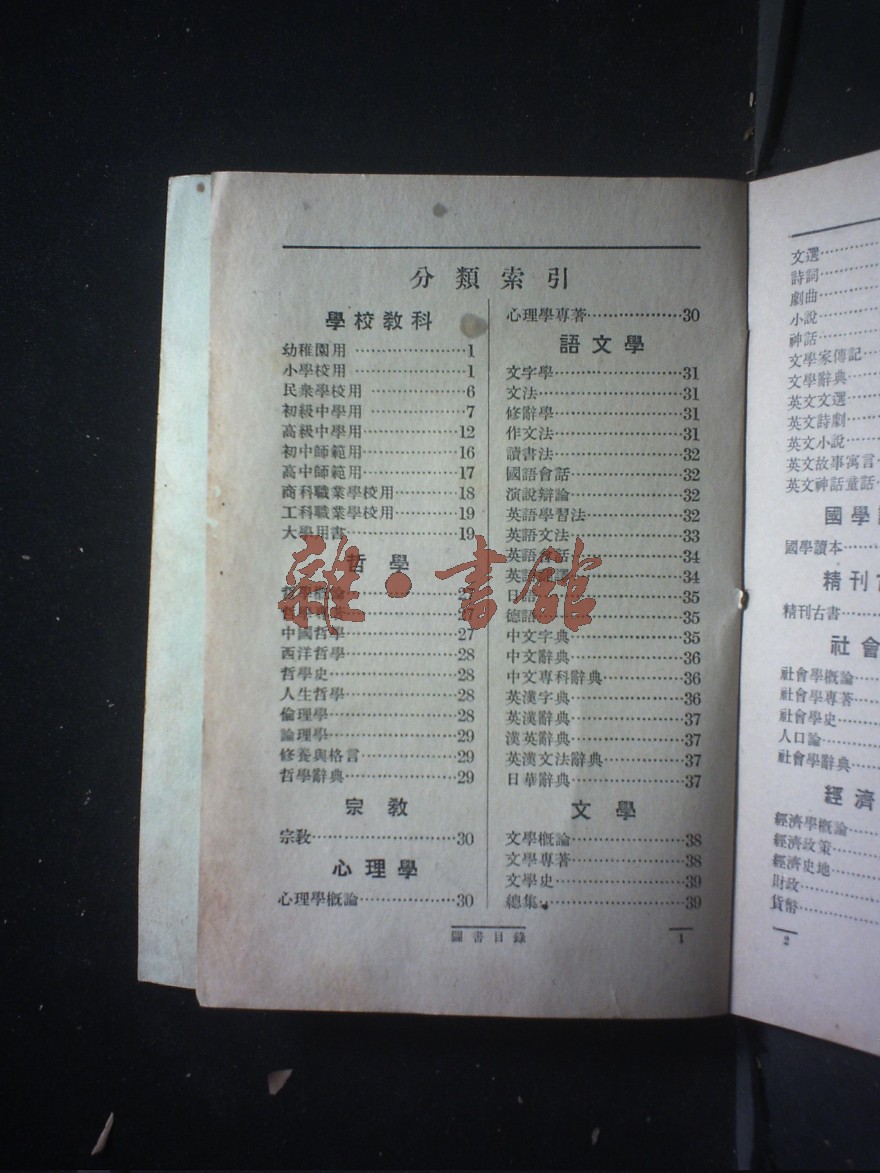 分類索引
學校敎科
幼稚園用⋯⋯⋯⋯1
小學校用⋯⋯⋯⋯1
民衆學校用⋯⋯⋯⋯6
初級中學用⋯⋯⋯⋯7
高級中學用⋯⋯⋯⋯12
初中師範用⋯⋯⋯⋯16
高中師範用⋯⋯⋯⋯17
商科職業學校用⋯⋯⋯⋯18
工科職業學校用⋯⋯⋯⋯19
大學用書⋯⋯⋯⋯19
哲學
哲學概論⋯⋯⋯⋯27
哲學專著⋯⋯⋯⋯27
中國哲學⋯⋯⋯⋯27
西洋哲學⋯⋯⋯⋯28
哲學史⋯⋯⋯⋯28
人生哲學⋯⋯⋯⋯28
倫理學⋯⋯⋯⋯28
論理學⋯⋯⋯⋯29
修養與格言⋯⋯⋯⋯29
哲學辭典⋯⋯⋯⋯29
宗敎
宗敎⋯⋯⋯⋯30
心理學
心理學概論⋯⋯⋯⋯30
心理學專著⋯⋯⋯⋯30
語文學
文字學⋯⋯⋯⋯31
文法⋯⋯⋯⋯31
修辭學⋯⋯⋯⋯31
作文法⋯⋯⋯⋯31
讀書法⋯⋯⋯⋯32
國語會話⋯⋯⋯⋯32
演說辯論⋯⋯⋯⋯32
英語學習法⋯⋯⋯⋯32
英語文法⋯⋯⋯⋯33
英語會話⋯⋯⋯⋯34
英語⋯⋯⋯⋯34
日語⋯⋯⋯⋯35
德語⋯⋯⋯⋯35
中文字典⋯⋯⋯⋯35
中文辭典⋯⋯⋯⋯36
中文專科辭典⋯⋯⋯⋯36
英漢字典⋯⋯⋯⋯36
英漢辭典⋯⋯⋯⋯37
漢英辭典⋯⋯⋯⋯37
英漢文法辭典⋯⋯⋯⋯37
日華辭典⋯⋯⋯⋯37
文學
文學概論⋯⋯⋯⋯38
文學專著⋯⋯⋯⋯38
文學史⋯⋯⋯⋯39
總集⋯⋯⋯⋯39
圖書目錄
1
文選⋯⋯⋯⋯
詩詞⋯⋯⋯⋯
劇曲⋯⋯⋯⋯
小說⋯⋯⋯⋯
神話⋯⋯⋯⋯
文學家傳記⋯⋯
文學辭典⋯⋯
英文文選⋯⋯
英文詩劇⋯⋯
英文小說⋯⋯
英文故事寓言
英文神話童話
國學
國學讀本⋯⋯
精刊古
精刊古書⋯⋯
社會
社會學概論⋯⋯
社會學專著⋯⋯
社會學史⋯⋯
人口論⋯⋯
社會學辭典⋯⋯
經濟
經濟學概論⋯⋯
經濟政策⋯⋯
經濟史地⋯⋯
財政⋯⋯
貨幣⋯⋯
2
雜·書館